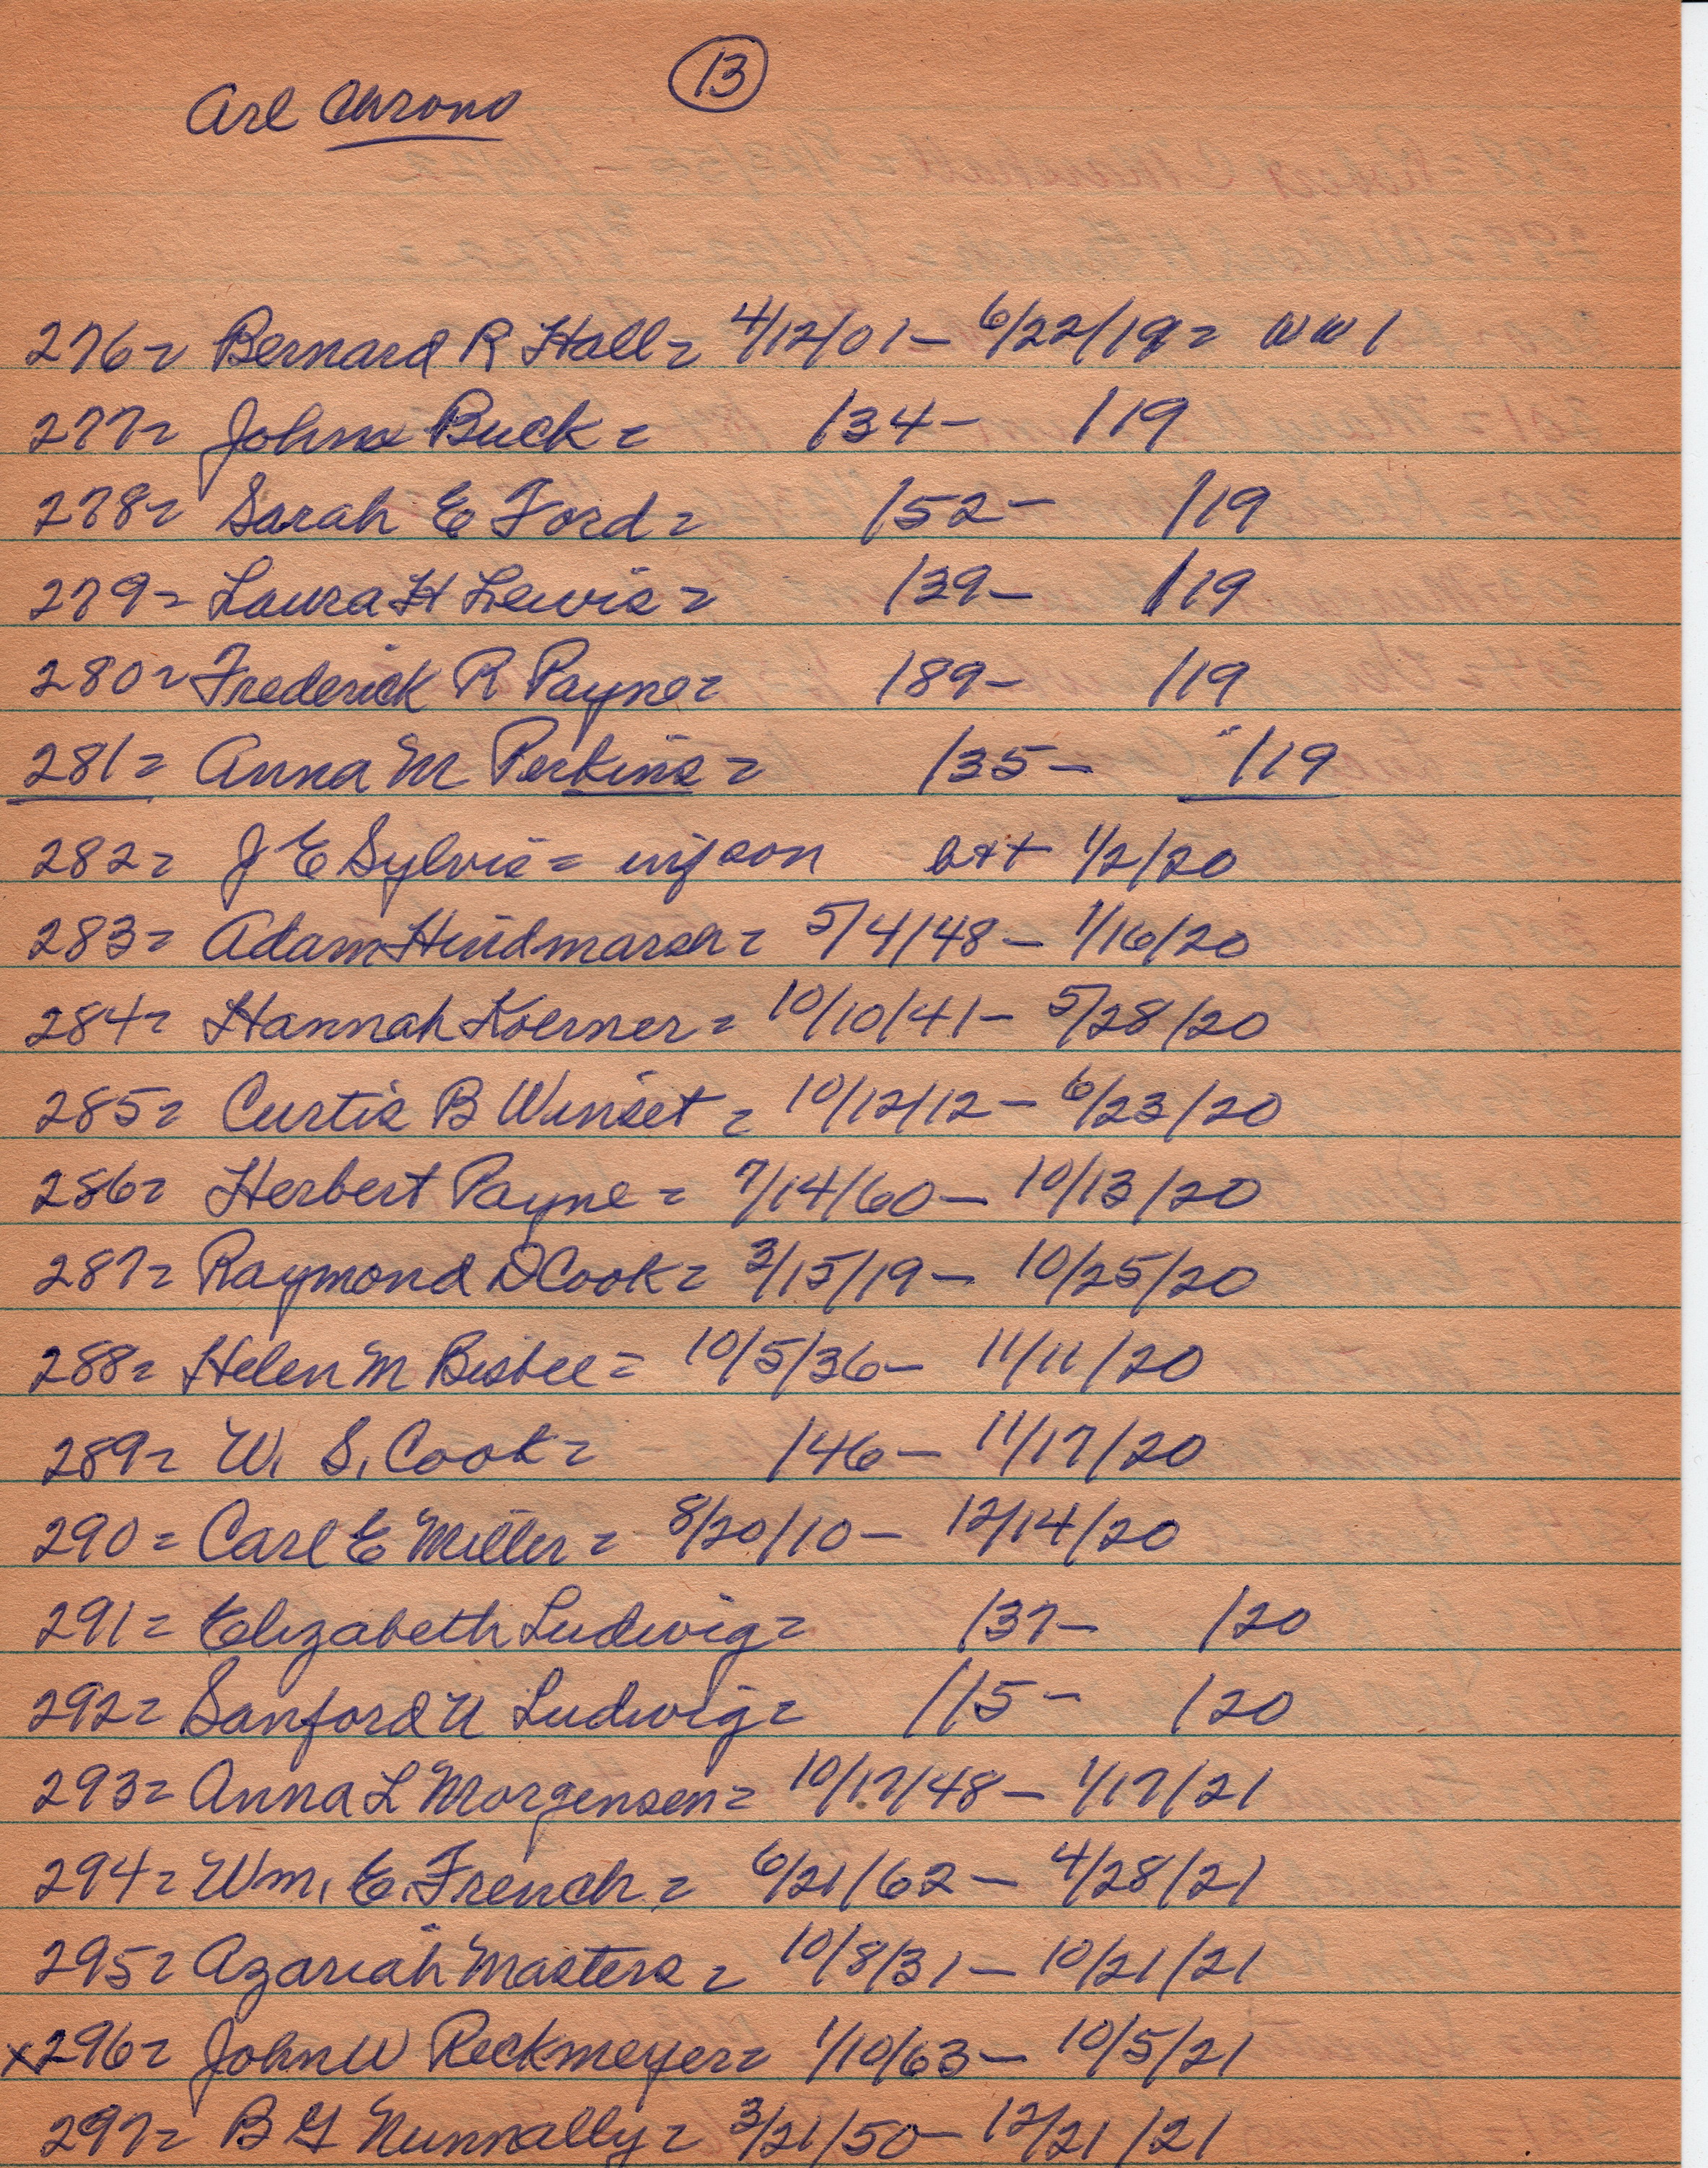 13
Arl Chrono
276= Bernard R Hall= 4/12/01- 6/22/19= WW1
277= John Buck= /34- /19
278= Sarah E Ford= /52- /19
279= Laura H Lewis= /39- /19
280= Frederick R Payne= /89- /19
281= Anna M Perkins= /35- /19
282= J E Sylvis= inf son b&+ 1/2/20
283= Adam Hindmarsh= 5/4/48- 1/16/20
284= Hannah Koerner= 10/10/41- 5/28/20
285= Curtis B Winset= 10/12/12- 6/23/20
286= Herbert Payne= 7/14/60- 10/13/20
287= Raymond D Cook= 3/15/19- 10/25/20
288= Helen M Bisbee= 10/5/36- 11/11/20
289= W. S. Cook= /46- 11/17/20
290= Carl E Miller= 8/20/10- 12/14/20
291= Elizabeth Ludwig= /37- /20
292= Sanford U Ludwig= /15- /20
293= Anna L Morgensen= 10/17/48- 1/17/21
294= Wm. E. French= 6/21/62- 4/28/21
295= Azariah Masters= 10/8/31- 10/21/21
x296= John W Reckmeyer= 1/10/63- 10/5/21
297= B G Nunnally= 3/21/50- 12/21/21